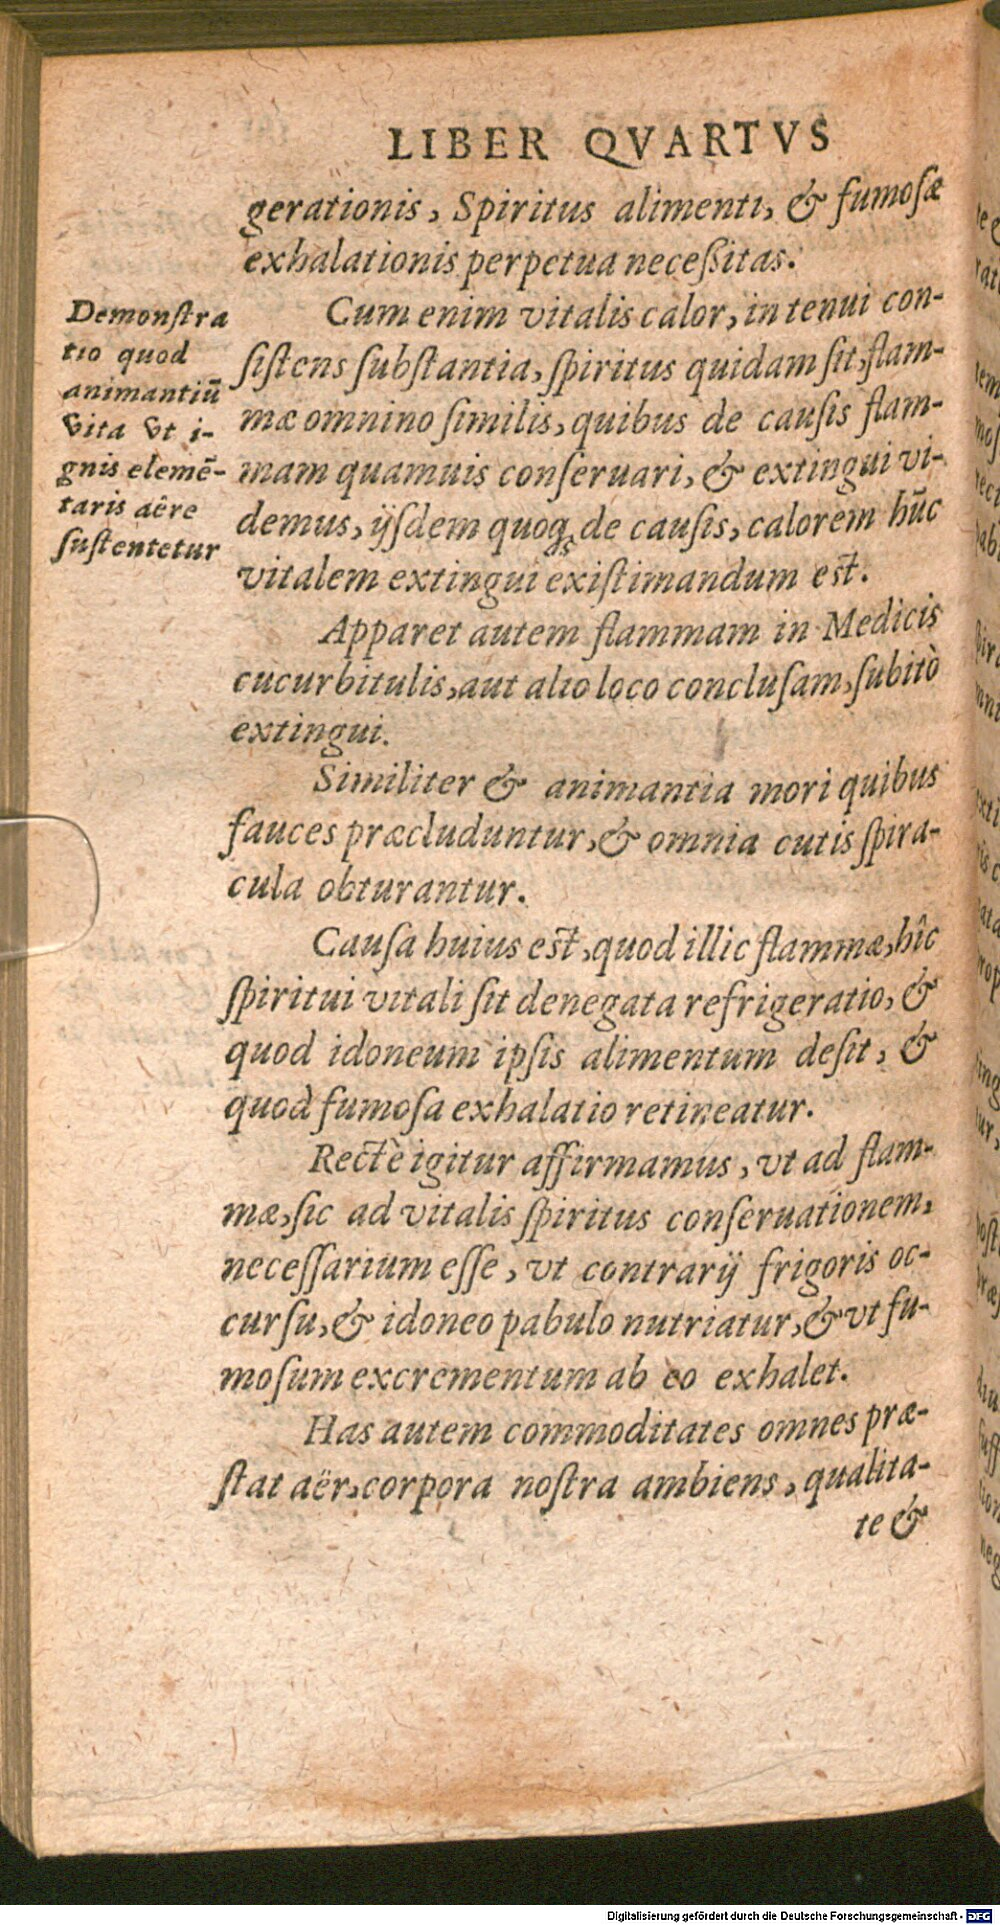 LIBER QVARTVS
gerationis, Spiritus alimenti, & fumosæ
exhalationis perpetua necessitas.
Demonstra
tio quod
animantiū
vita vt i-
gnis elemē-
taris aêre
sustentetur
Cum enim vitalis calor, in tenui con-
sistens substantia, spiritus quidam sit, flam-
mæ omnino similis, quibus de causis flam-
mam quamuis conseruari, & extingui vi-
demus, ijsdem quoq; de causis, calorem hūc
vitalem extingui existimandum est.
Apparet autem flammam in Medicis
cucurbitulis, aut alio loco conclusam, subitò
extingui.
Similiter & animantia mori quibus
fauces præcluduntur, & omnia cutis spira-
cula obturantur.
Causa huius est, quod illic flammæ, hîc
spiritui vitali sit denegata refrigeratio, &
quod idoneum ipsis alimentum desit, &
quod fumosa exhalatio retineatur.
Rectè igitur affirmamus, vt ad flam-
mæ, sic ad vitalis spiritus conseruationem,
necessarium esse, vt contrarij frigoris oc-
cursu, & idoneo pabulo nutriatur, & vt fu-
mosum excrementum ab eo exhalet.
Has autem commoditates omnes præ-
stat aër, corpora nostra ambiens, qualita-
te &
Digitalisierung gefördert durch die Deutsche Forschungsgemeinschaft - DFG